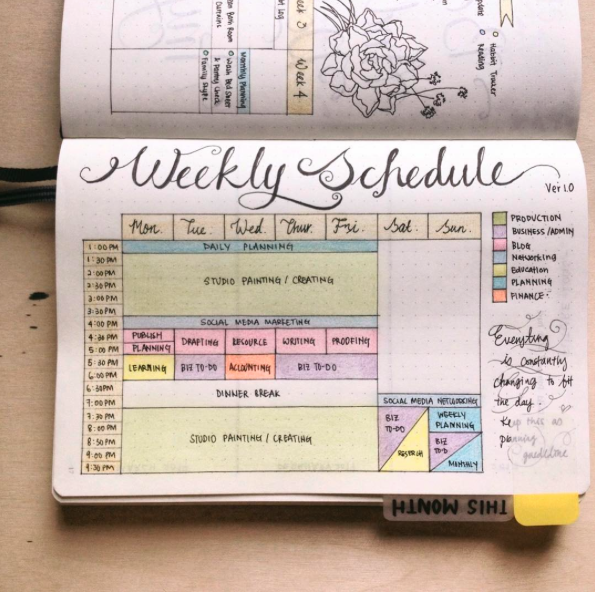 Week 3
Week 4
Monthly Planning
Wash Bed Sheet
& Pantry Check
Family Skype
Habit Tracker
Reading
Weekly Schedule
Ver 1.0
Mon. Tue. Wed. Thur. Fri. Sat. Sun.
1:00 PM DAILY PLANNING
1:30 PM
2:00 PM
2:30 PM STUDIO PAINTING / CREATING
3:00 PM
3:30 PM
4:00 PM SOCIAL MEDIA MARKETING
4:30 PM PUBLISH DRAFTING RESOURCE WRITING PROOFING
5:00 PM PLANNING
5:30 PM LEARNING BIZ TO-DO ACCOUNTING BIZ TO-DO
6:00 PM
6:30 PM DINNER BREAK
7:00 PM SOCIAL MEDIA NETWORKING
7:30 PM BIZ WEEKLY
8:00 PM TO-DO PLANNING
STUDIO PAINTING / CREATING
8:30 PM BIZ
TO-D
9:00 PM
9:30 PM MONTHLY
PRODUCTION
BUSINESS/ADMIN
BLOG
Networking
Education
PLANNING
FINANCE
Everything
is constantly
changing to fit
the day.
Keep this as
planning
guideline
THIS MONTH